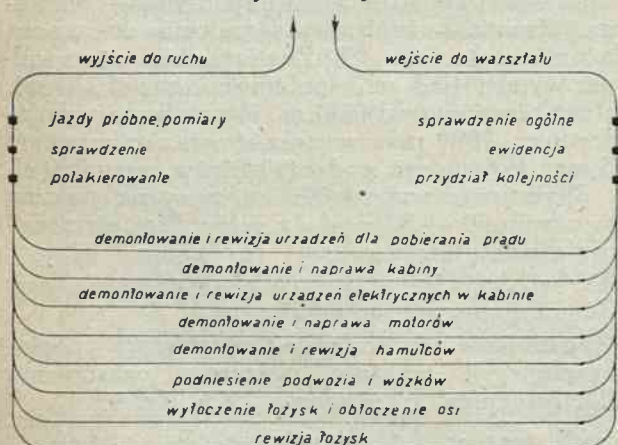 wyjście do ruchu
wejście do warsztatu
jazdy próbne, pomiary
sprawdzenie ogólne
sprawdzenie
ewidencja
polakierowanie
przydział kolejności
demontowanie i rewizja urządzeń dla pobierania prądu
demontowanie i naprawa kabiny
demontowanie i rewizja urządzeń elektrycznych w kabinie
demontowanie i naprawa motorów
demontowanie i rewizja hamulców
podniesienie podwozia i wózków
wytoczenie łożysk i obtoczenie osi
rewizja łożysk